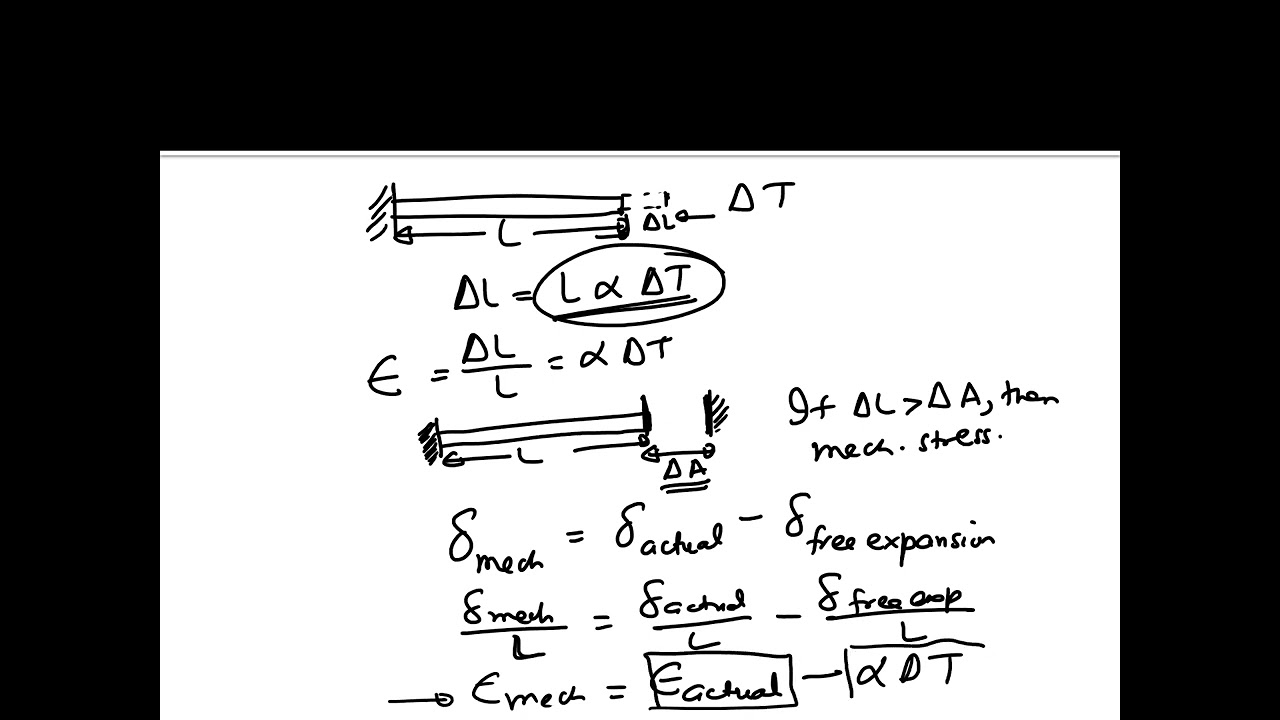 L ΔL ΔT
ΔL = L α ΔT
ϵ = ΔL/L = α ΔT
If ΔL > ΔA, then
mech. stress.
L ΔA
δmech = δactual - δfree expansion
δmech/L = δactual/L - δfree exp/L
→ ϵmech = ϵactual - α ΔT